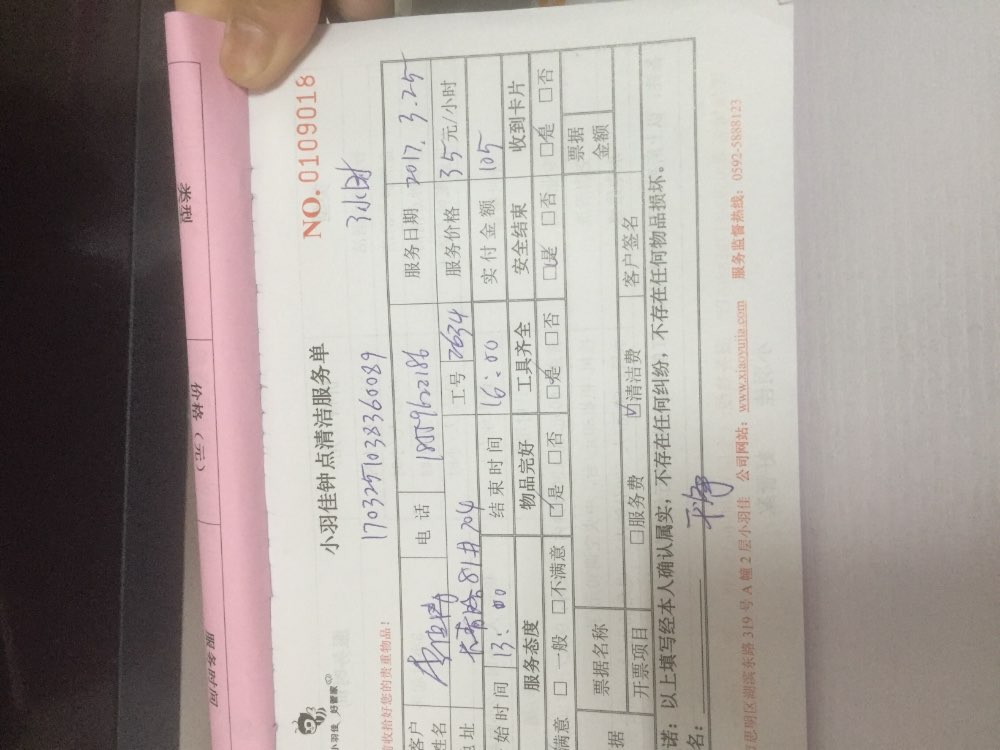 类型
价格（元）
服务时间
NO.0109018
小羽佳 好管家
小羽佳钟点清洁服务单
1703251038360089
收拾好您的贵重物品！
客户姓名 电话 18059622186 服务日期 2017.3.25
地址 81#704 工号 2634 服务价格 35元/小时
始时间 13:00 结束时间 16:00 实付金额 105
服务态度 物品完好 工具齐全 安全结束 收到卡片
满意 □一般 □不满意 ☑是 □否 ☑是 □否 ☑是 □否 ☑是 □否
据 票据名称 票据金额
开票项目 □服务费 ☑清洁费 客户签名
诺：以上填写经本人确认属实，不存在任何纠纷，不存在任何物品损坏。
名： 干净
思明区湖滨东路319号A幢2层小羽佳 公司网站：www.xiaoyujia.com 服务监督热线：0592-5888123